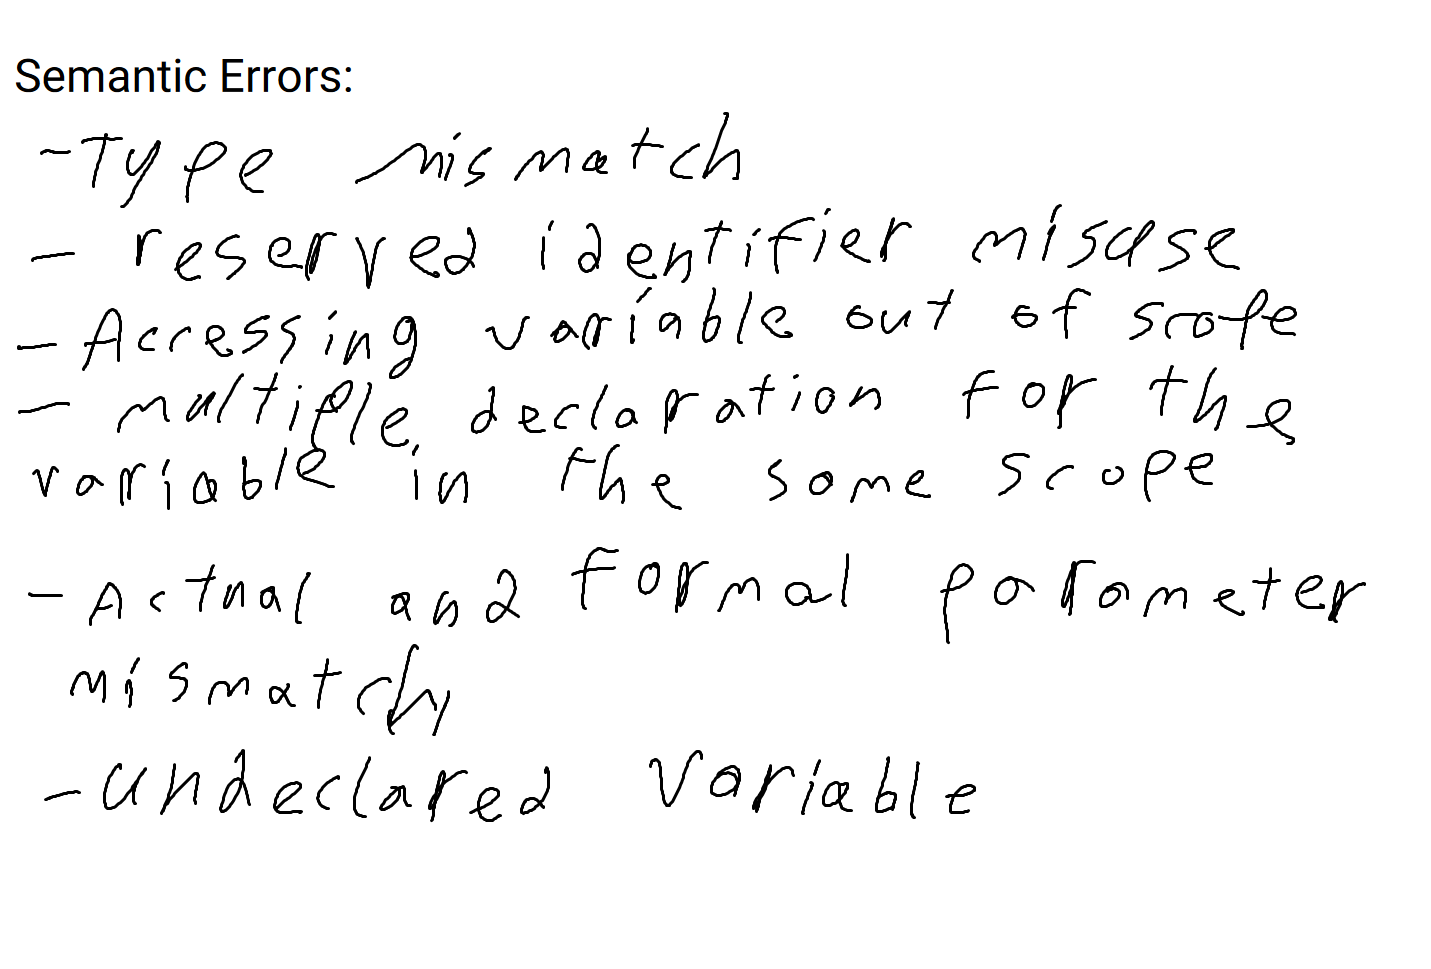 Semantic Errors:
- Type mismatch
- reserved identifier misuse
- Accessing variable out of scope
- multiple declaration for the
variable in the same scope
- Actual and formal parameter
mismatch
- undeclared variable